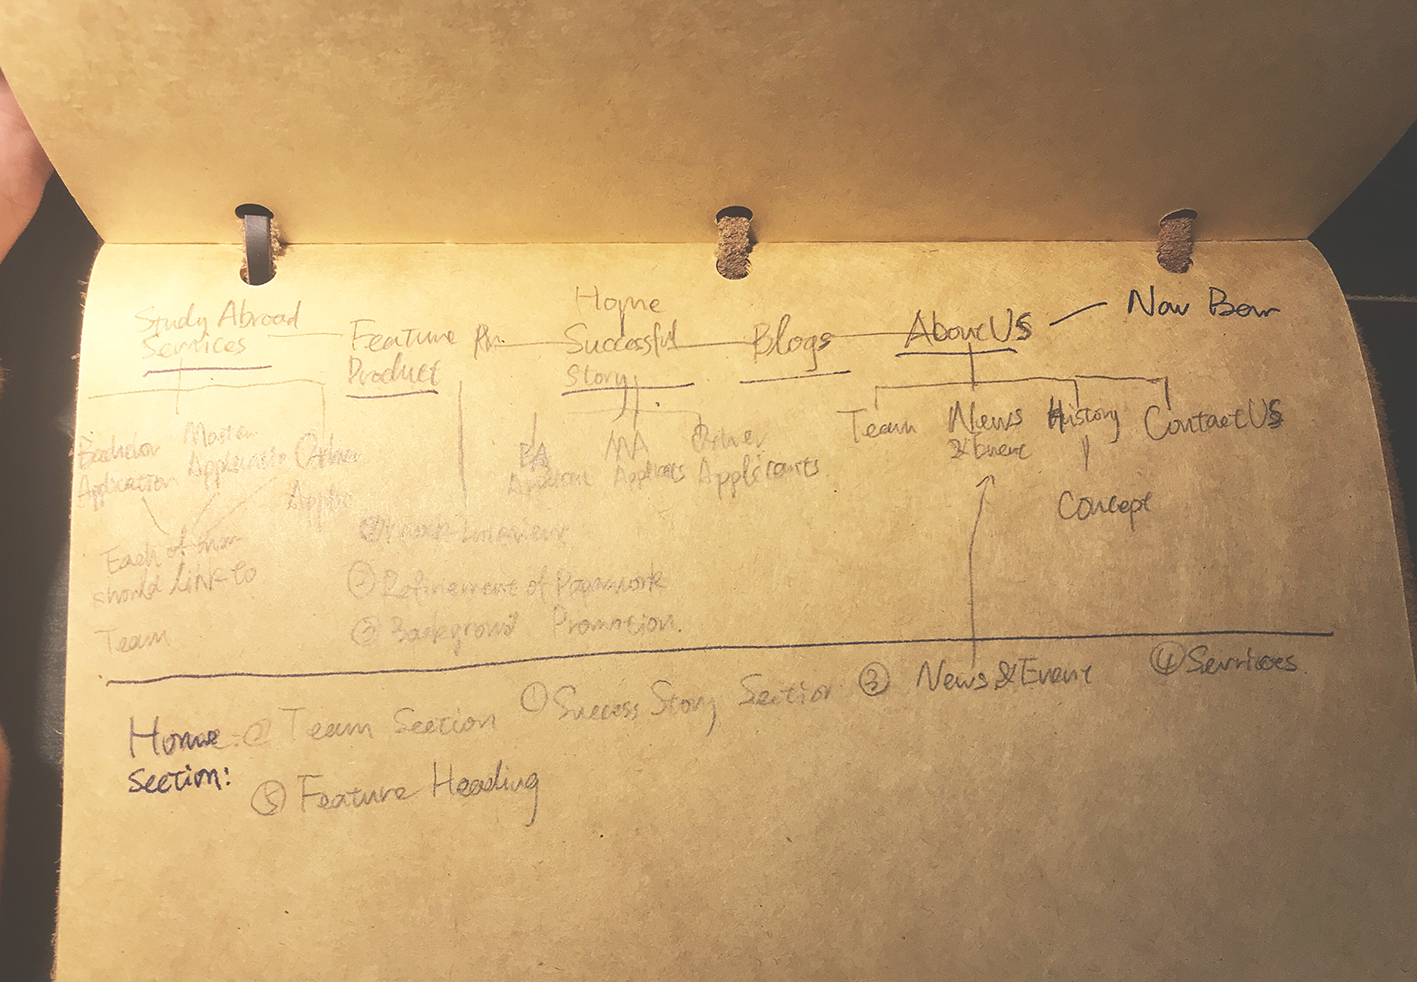 Home
Study Abroad
Services
Feature
Product
Successful
Story
Blogs
About Us
Nav Bar
Bachelor
Application
Master
Application
Other
BA
Applicant
MA
Applicants
Other
Applicants
Team
News
& Event
History
Contact Us
Concept
Each of them
should link to
Team
Interview
② Refinement of Paperwork
③ Background Promotion.
Home
Section:
Team Section
① Success Story Section
③ News & Event
④ Services
⑤ Feature Heading